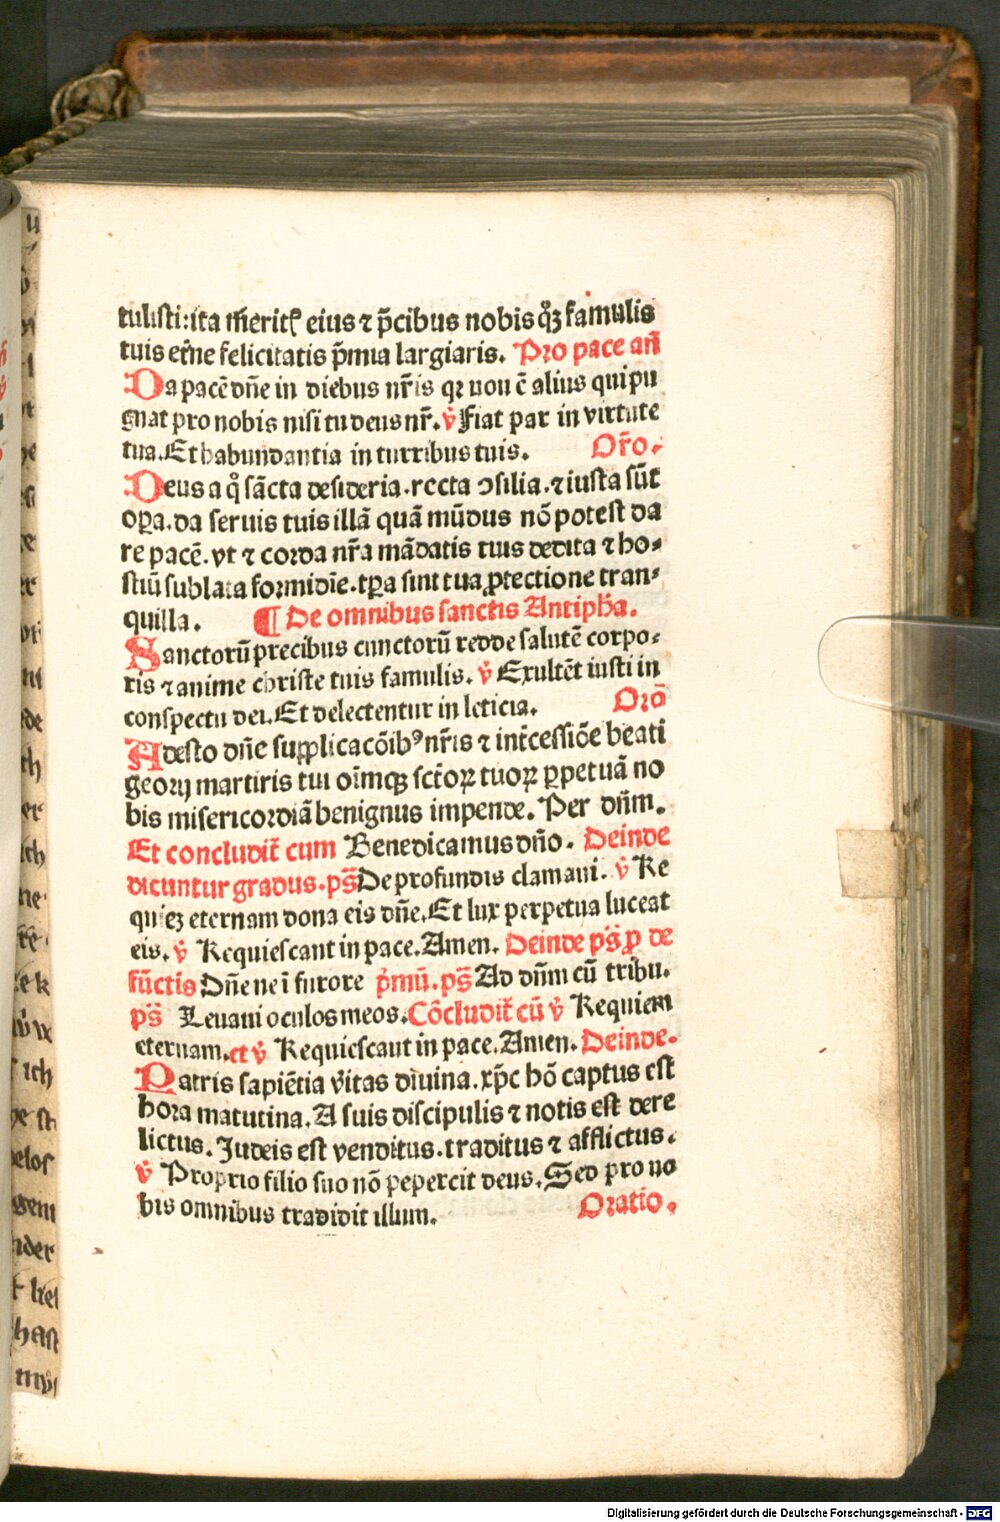 tulisti: ita m̄eritꝭ eius ⁊ p̄cibus nobis qͥꝫ famulis
tuis et̄ne felicitatis p̄mia largiaris. Pro pace an̄
Da pacē dn̄e in diebus nr̄is qꝛ nou ē alius qui pu
gnat pro nobis nisi tu deus nr̄. v̊ Fiat pax in virtute
tua. Et habundantia in turribus tuis. Or̄o.
Deus a qͦ sācta desideria. recta ↄsilia. ⁊ iusta sūt
oꝑa. da seruis tuis illā quā mūdus nō potest da
re pacē. vt ⁊ corda nr̄a mādatis tuis dedita ⁊ ho-
stiū sublata formidīe. tꝑa sint tua ꝓtectione tran-
quilla. ¶ De omnibus sanctis Antiph̄a.
Sanctorū precibus cunctorū redde salutē corpo-
ris ⁊ anime christe tuis famulis. v̊ Exultēt iusti in
conspectu dei. Et delectentur in leticia. Orō
Adesto dn̄e supplicacōibꝰ nr̄is ⁊ int̄cessiōe beati
georij martiris tui oīmqꝫ sct̄oꝝ tuoꝝ ꝑpetuā no
bis misericordiā benignus impende. Per dn̄m.
Et concludit̄ cum Benedicamus dn̄o. Deinde
dicuntur gradus. ps̄ De profundis clamaui. v̊ Re
quiēꝫ eternam dona eis dn̄e. Et lux perpetua luceat
eis. v̊ Requiescant in pace. Amen. Deinde ps̄ ꝓ de
fūctis Dn̄e ne ī furore pͥmū. ps̄ Ad dn̄m cū tribu.
ps̄ Leuaui oculos meos. Cōcludit̄ cū v̊ Requiem
eternam. et v̊ Requiescant in pace. Amen. Deinde.
Patris sapiētia v̄itas diuina. xp̄c hō captus est
hora matutina. A suis discipulis ⁊ notis est dere
lictus. Iudeis est venditus. traditus ⁊ afflictus.
v̊ Proprio filio suo nō pepercit deus. Sed pro no
bis omnibus tradidit illum. Oratio.
Digitalisierung gefördert durch die Deutsche Forschungsgemeinschaft - DFG